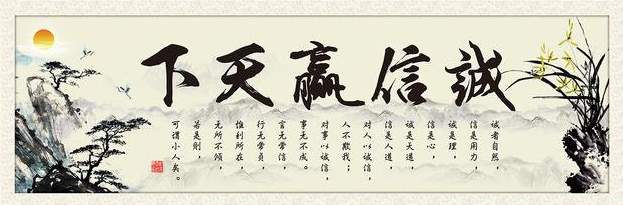 誠信贏天下
誠者自然，
信是用力，
誠是理，
信是心，
誠是天道，
信是人道，
對人以誠信，
人不欺我；
對事以誠信，
事无不成。
言无常信，
行无常貞，
惟利所在，
无所不傾，
若是則，
可謂小人矣。